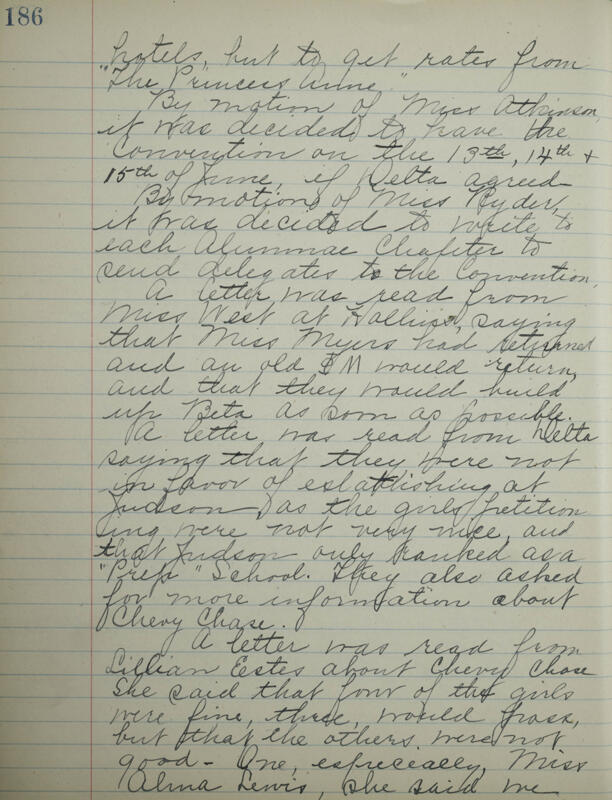 186
hotels, but to get rates from
"The Princess Anne."
By motion of Miss Atkinson,
it was decided to have the
Convention on the 13th, 14th +
15th of June, if Delta agreed
By motion of Miss Ryder,
it was decided to write to
each Alumnae Chapter to
send delegates to the Convention.
A letter was read from
Miss West at Hollins, saying
that Miss Myers had returned
and an old ΦM would return,
and that they would build
up Beta as soon as possible.
A letter was read from Delta
saying that they were not
in favor of establishing at
Judson, as the girls petition
ing were not very nice, and
that Judson only ranked as a
"Prep" School. They also asked
for more information about
Chevy Chase.
A letter was read from
Lillian Estes about Chevy Chase
She said that four of the girls
were fine, three, would pass,
but that the others were not
good - One, especeally, Miss
Alma Lewis, she said we